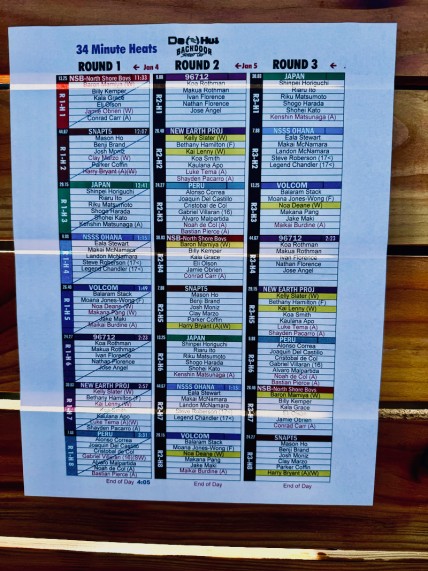 Da Hui
BACKDOOR
34 Minute Heats
ROUND 1 ← Jan 4
ROUND 2 ← Jan 5
ROUND 3 ←
R1-H1
NSB-North Shore Boys 11:33
Billy Kemper
Kala Grace
Eli Olson
Jamie Obrien
Conrad Carr (A)
SNAPTS 12:07
Mason Ho
Benji Brand
Josh Moniz
Clay Marzo (W)
Parker Coffin
Harry Bryant (A)(W)
R1-H3
JAPAN 12:41
Shinpei Horiguchi
Riaru Ito
Riku Matsumoto
Shogo Harada
Shohei Kato
Kenshin Matsunaga (A)
NSSS OHANA 1:15
Eala Stewart
Makai McNamara
Landon McNamara
Steve Roberson (17<)
Legend Chandler (17<)
R1-H5
VOLCOM 1:49
Balaram Stack
Moana Jones-Wong (F)
Noa Deane (W)
Makana Pang (W)
Jake Maki
Maikai Burdine (A)
R1-H6
96712 2:23
Koa Rothman
Makua Rothman
Ivan Florence
Nathan Florence
Jose Angel
NEW EARTH PROJ 2:57
Kelly Slater (W)
Bethany Hamilton (F)
Kai Lenny (W)
Kaulana Apo
Luke Tema (A)(W)
Shayden Pacarro (A)
PERU 3:31
Alonso Correa
Joaquin Del Castillo
Cristobal de Col
Gabriel Villaran (16)(SW)
Alvaro Malpartida
Noah de Col (A)
Bastian Pierce (A)
End of Day 4:05
R2-H1
96712
Koa Rothman
Makua Rothman
Ivan Florence
Nathan Florence
Jose Angel
R2-H2
NEW EARTH PROJ
Kelly Slater (W)
Bethany Hamilton (F)
Kai Lenny (W)
Koa Smith
Kaulana Apo
Luke Tema (A)
Shayden Pacarro (A)
R2-H3
PERU
Alonso Correa
Joaquin Del Castillo
Cristobal de Col
Gabriel Villaran (16)
Alvaro Malpartida
Noah de Col (A)
Bastian Pierce (A)
R2-H4
NSB-North Shore Boys
Baron Mamiya (W)
Billy Kemper
Kala Grace
Eli Olson
Jamie Obrien
Conrad Carr (A)
R2-H5
SNAPTS
Mason Ho
Benji Brand
Josh Moniz
Clay Marzo
Parker Coffin
Harry Bryant (A)(W)
R2-H6
JAPAN
Shinpei Horiguchi
Riaru Ito
Riku Matsumoto
Shogo Harada
Shohei Kato
Kenshin Matsunaga (A)
R2-H7
NSSS OHANA
Eala Stewart
Makai McNamara
Landon McNamara
Legend Chandler (17<)
R2-H8
VOLCOM
Balaram Stack
Moana Jones-Wong (F)
Noa Deane (W)
Makana Pang
Jake Maki
Maikai Burdine (A)
End of Day
R3-H1
JAPAN
Shinpei Horiguchi
Riaru Ito
Riku Matsumoto
Shogo Harada
Shohei Kato
Kenshin Matsunaga (A)
R3-H2
NSSS OHANA
Eala Stewart
Makai McNamara
Landon McNamara
Steve Roberson (17<)
Legend Chandler (17<)
R3-H3
VOLCOM
Balaram Stack
Moana Jones-Wong (F)
Noa Deane (W)
Makana Pang
Jake Maki
Maikai Burdine (A)
R3-H4
96712 2:23
Koa Rothman
Makua Rothman
Ivan Florence
Nathan Florence
Jose Angel
R3-H5
NEW EARTH PROJ
Kelly Slater (W)
Bethany Hamilton (F)
Kai Lenny (W)
Koa Smith
Kaulana Apo
Luke Tema (A)
Shayden Pacarro (A)
PERU
Alonso Correa
Joaquin Del Castillo
Cristobal de Col
Gabriel Villaran (16)
Alvaro Malpartida
Noah de Col (A)
Bastian Pierce (A)
NSB-North Shore Boys
Baron Mamiya (W)
Billy Kemper
Kala Grace
Jamie Obrien
Conrad Carr (A)
SNAPTS
Mason Ho
Benji Brand
Josh Moniz
Clay Marzo
Parker Coffin
Harry Bryant (A)(W)
End of Day